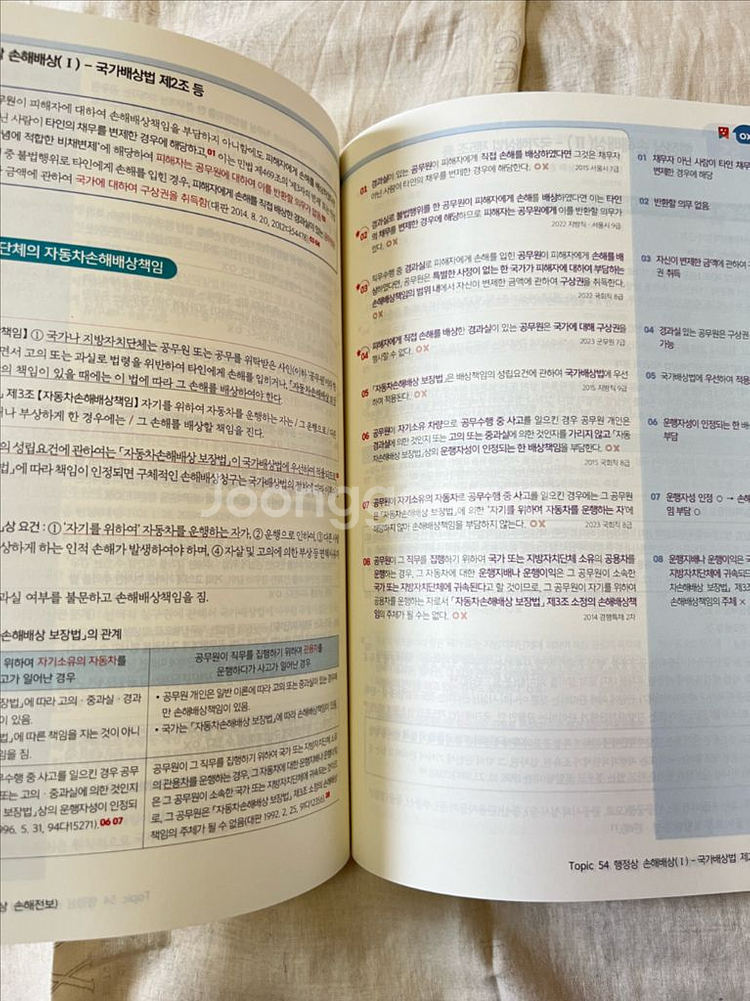 손해배상(Ⅰ) - 국가배상법 제2조 등
공무원이 피해자에 대하여 손해배상책임을 부담하지 아니함에도 피해자에게 손해를
아닌 사람이 타인의 채무를 변제한 경우에 해당하고 01 이는 민법 제469조의
념에 적합한 비채변제'에 해당하여 피해자는 공무원에 대하여 이를 반환할 의무가 없
중 불법행위로 타인에게 손해를 입힌 경우, 피해자에게 손해를 직접 배상한 경과실이 있는
금액에 관하여 국가에 대하여 구상권을 취득함(대판 2014. 8. 20, 2012다54478). 03 04
단체의 자동차손해배상책임
책임】 ① 국가나 지방자치단체는 공무원 또는 공무를 위탁받은 사인(이하
면서 고의 또는 과실로 법령을 위반하여 타인에게 손해를 입히거나, 「자동차손해배상 보장
의 책임이 있을 때에는 이 법에 따라 그 손해를 배상하여야 한다.
제3조【자동차손해배상책임】 자기를 위하여 자동차를 운행하는 자는 / 그 운행으로
나 부상하게 한 경우에는 / 그 손해를 배상할 책임을 진다.
의 성립요건에 관하여는 「자동차손해배상 보장법」이 국가배상법에 우선하여 적용되므로
법」에 따라 책임이 인정되면 구체적인 손해배상청구는 국가배상법의 절차에 따라
상 요건 : ① '자기를 위하여' 자동차를 운행하는 자가, ② 운행으로 인하여, ③ 다른
상하게 하는 인적 손해가 발생하여야 하며, ④ 자살 및 고의에 의한 부상 등 면책사유
과실 여부를 불문하고 손해배상책임을 짐.
손해배상 보장법」의 관계
위하여 자기소유의 자동차를
고가 일어난 경우
공무원이 직무를 집행하기 위하여 관용차를
운행하다가 사고가 일어난 경우
장법」에 따라 고의 · 중과실 · 경과
이 있음.
법」에 따른 책임을 지는 것이 아니
임을 짐.
• 공무원 개인은 일반 이론에 따라 고의 또는 중과실이 있는 경우에
만 손해배상책임이 있음.
• 국가는 「자동차손해배상 보장법」에 따라 손해배상책임이 있음
무수행 중 사고를 일으킨 경우 공무
또는 고의 · 중과실에 의한 것인지
보장법」상의 운행자성이 인정되
996. 5. 31, 94다15271). 06 07
공무원이 그 직무를 집행하기 위하여 국가 또는 지방자치단체 소유
의 관용차를 운행하는 경우, 그 자동차에 대한 운행지배나 운행이익
은 그 공무원이 소속한 국가 또는 지방자치단체에 귀속되는 것으
로, 그 공무원은 「자동차손해배상 보장법」 제3조 소정의 손해배상
책임의 주체가 될 수 없음(대판 1992. 2. 25, 91다12356). 08
상 손해전보)
01 경과실이 있는 공무원이 피해자에게 직접 손해를 배상하였다면 그것은 채무자
아닌 사람이 타인의 채무를 변제한 경우에 해당한다. O X 2015 서울시 7급
02 경과실로 불법행위를 한 공무원이 피해자에게 손해를 배상하였다면 이는 타인
의 채무를 변제한 경우에 해당하므로 피해자는 공무원에게 이를 반환할 의무가
있다. O X 2022 지방직 · 서울시 9급
03 직무수행 중 경과실로 피해자에게 손해를 입힌 공무원이 피해자에게 손해를 배
상하였다면, 공무원은 특별한 사정이 없는 한 국가가 피해자에 대하여 부담하는
손해배상책임의 범위 내에서 자신이 변제한 금액에 관하여 구상권을 취득한다.
O X 2022 국회직 8급
04 피해자에게 직접 손해를 배상한 경과실이 있는 공무원은 국가에 대해 구상권을
행사할 수 없다. O X 2023 군무원 7급
05 「자동차손해배상 보장법」은 배상책임의 성립요건에 관하여 국가배상법에 우선
하여 적용된다. O X 2015 지방직 9급
06 공무원이 자기소유 차량으로 공무수행 중 사고를 일으킨 경우 공무원 개인은
경과실에 의한 것인지 또는 고의 또는 중과실에 의한 것인지를 가리지 않고 「자동
차손해배상 보장법」상의 운행자성이 인정되는 한 배상책임을 부담한다. O X
2015 국회직 8급
07 공무원이 자기소유의 자동차로 공무수행 중 사고를 일으킨 경우에는 그 공무원
은 「자동차손해배상 보장법」에 의한 '자기를 위하여 자동차를 운행하는 자'에
해당하지 않아 손해배상책임을 부담하지 않는다. O X 2023 국회직 8급
08 공무원이 그 직무를 집행하기 위하여 국가 또는 지방자치단체 소유의 공용차를
운행하는 경우, 그 자동차에 대한 운행지배나 운행이익은 그 공무원이 소속한
국가 또는 지방자치단체에 귀속된다고 할 것이므로, 그 공무원이 자기를 위하여
공용차를 운행하는 자로서 「자동차손해배상 보장법」 제3조 소정의 손해배상책임
의 주체가 될 수는 없다. O X 2014 경행특채 2차
OX
01 채무자 아닌 사람이 타인 채무
변제한 경우에 해당
02 반환할 의무 없음
03 자신이 변제한 금액에 관하여
권 취득
04 경과실 있는 공무원은 구상권
가능
05 국가배상법에 우선하여 적용
06 운행자성이 인정되는 한 배
부담
07 운행자성 인정 ○ → 손해
임 부담 ○
08 운행지배나 운행이익은 국
지방자치단체에 귀속되
「자동차손해배상 보장법」 제3조
손해배상책임의 주체 ×
Topic 54 행정상 손해배상(Ⅰ) - 국가배상법 제2
Joongg